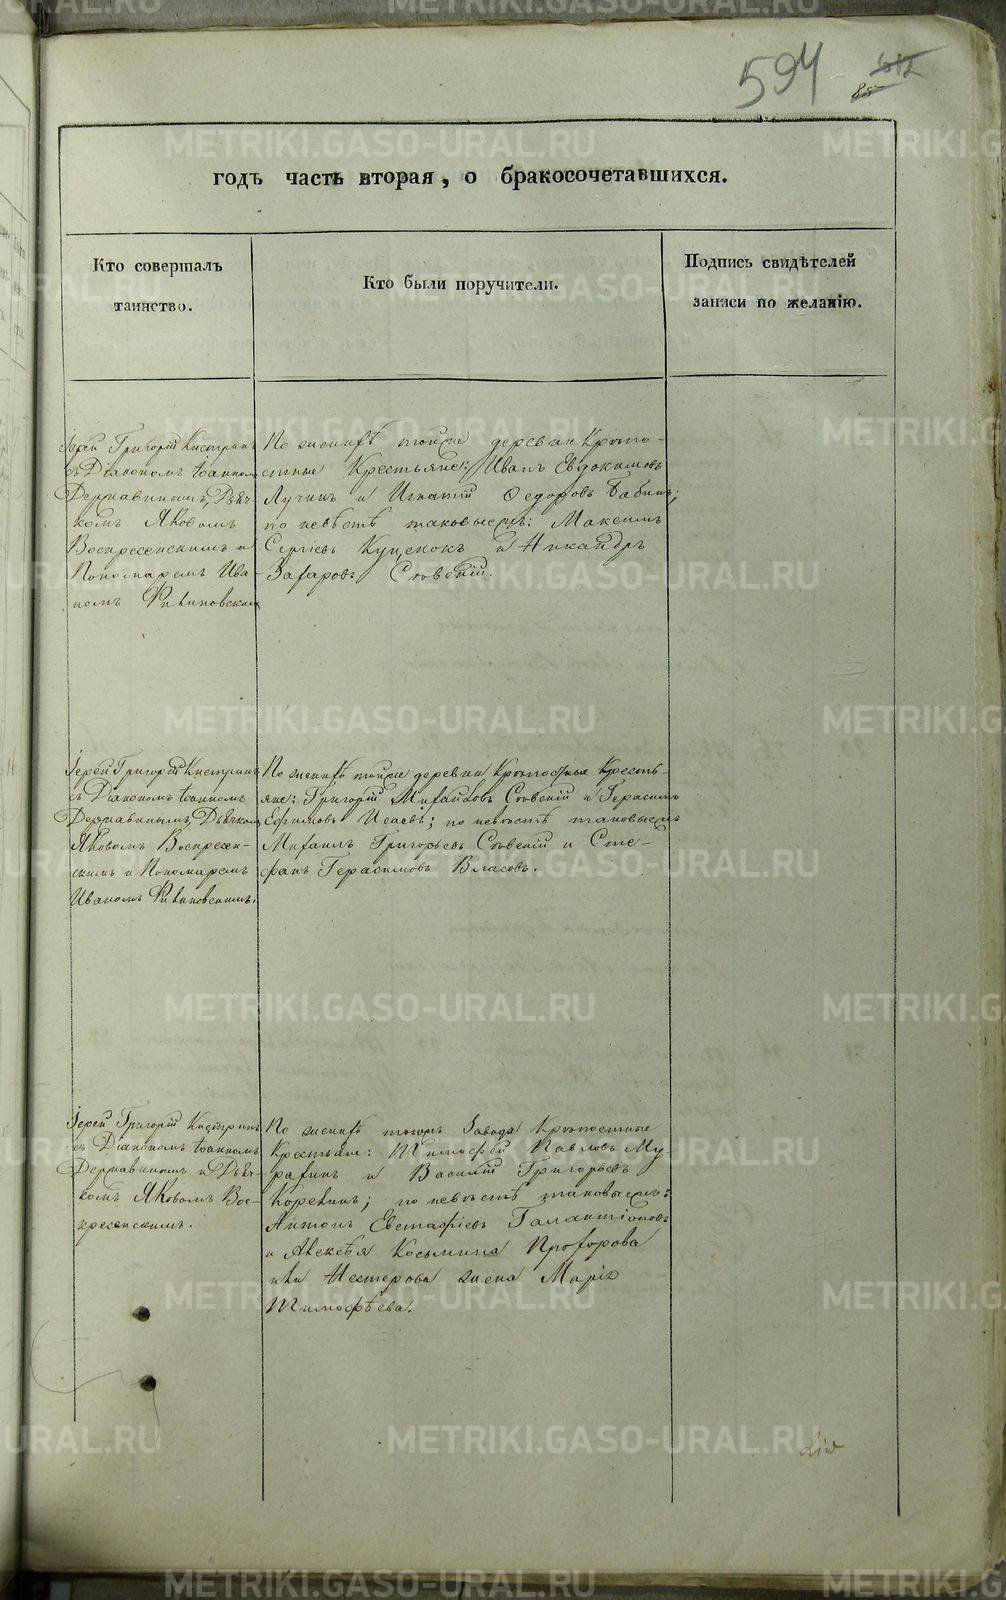 594
85
годъ часть вторая, о бракосочетавшихся.
Кто совершалъ
таинство.
Кто были поручители.
Подпись свидѣтелей
записи по желанію.
Іерей Григорій Кистринъ
съ Діакономъ Іоанномъ
Державинымъ, Дьяч-
комъ Яковомъ
Воскресенскимъ и
Пономаремъ Ива-
номъ
По женихѣ тойже деревни Крѣпо-
стные Крестьяне: Иванъ Евдокимовъ
Лучинъ и Игнатій Ѳедоровъ Бабинъ;
по невѣстѣ таковыежъ: Максимъ
Сергіевъ Куценокъ и Никандръ
Захаровъ
Іерей Григорій Кистринъ
съ Діакономъ Іоанномъ
Державинымъ, Дьячкомъ
Яковомъ Воскресен-
скимъ и Пономаремъ
Иваномъ
По женихѣ тойже деревни Крѣпостные Кресть-
яне: Григорій Михайловъ и Герасимъ
Ефимовъ Исаевъ; по невѣстѣ таковыежъ
Михаилъ Григорьевъ и Сте-
фанъ Герасимовъ Власовъ.
Іерей Григорій Кистринъ
съ Діакономъ Іоанномъ
Державинымъ и Дьяч-
комъ Яковомъ Вос-
кресенскимъ.
По женихѣ тогожъ Завода Крѣпостные
Крестьяне: Тимофей Павловъ Му-
рагинъ и Василій Григорьевъ
Корелинъ; по невѣстѣ таковыежъ:
Антонъ Евстафіевъ Галактіоновъ
и Алексѣя Косьмина Прохорова
или Нестерова жена Марія
Тимофѣева.
METRIKI.GASO-URAL.RU